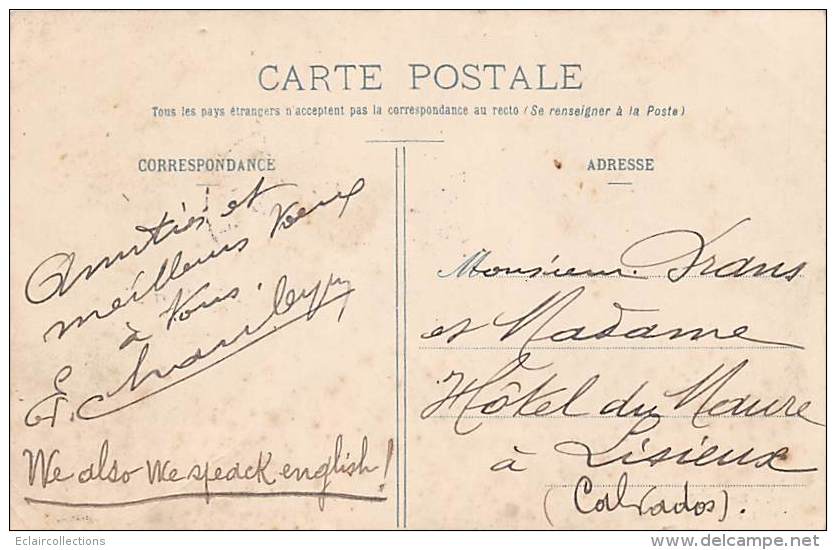 CARTE POSTALE
Tous les pays étrangers n'acceptent pas la correspondance au recto (Se renseigner à la Poste)
CORRESPONDANCE
Amitiés et
meilleurs voeux
à vous.
We also we speack english!
ADRESSE
Monsieur
et Madame
Hôtel du Maure
à Lisieux
(Calvados).
Eclaircollections
www.delcampe.net